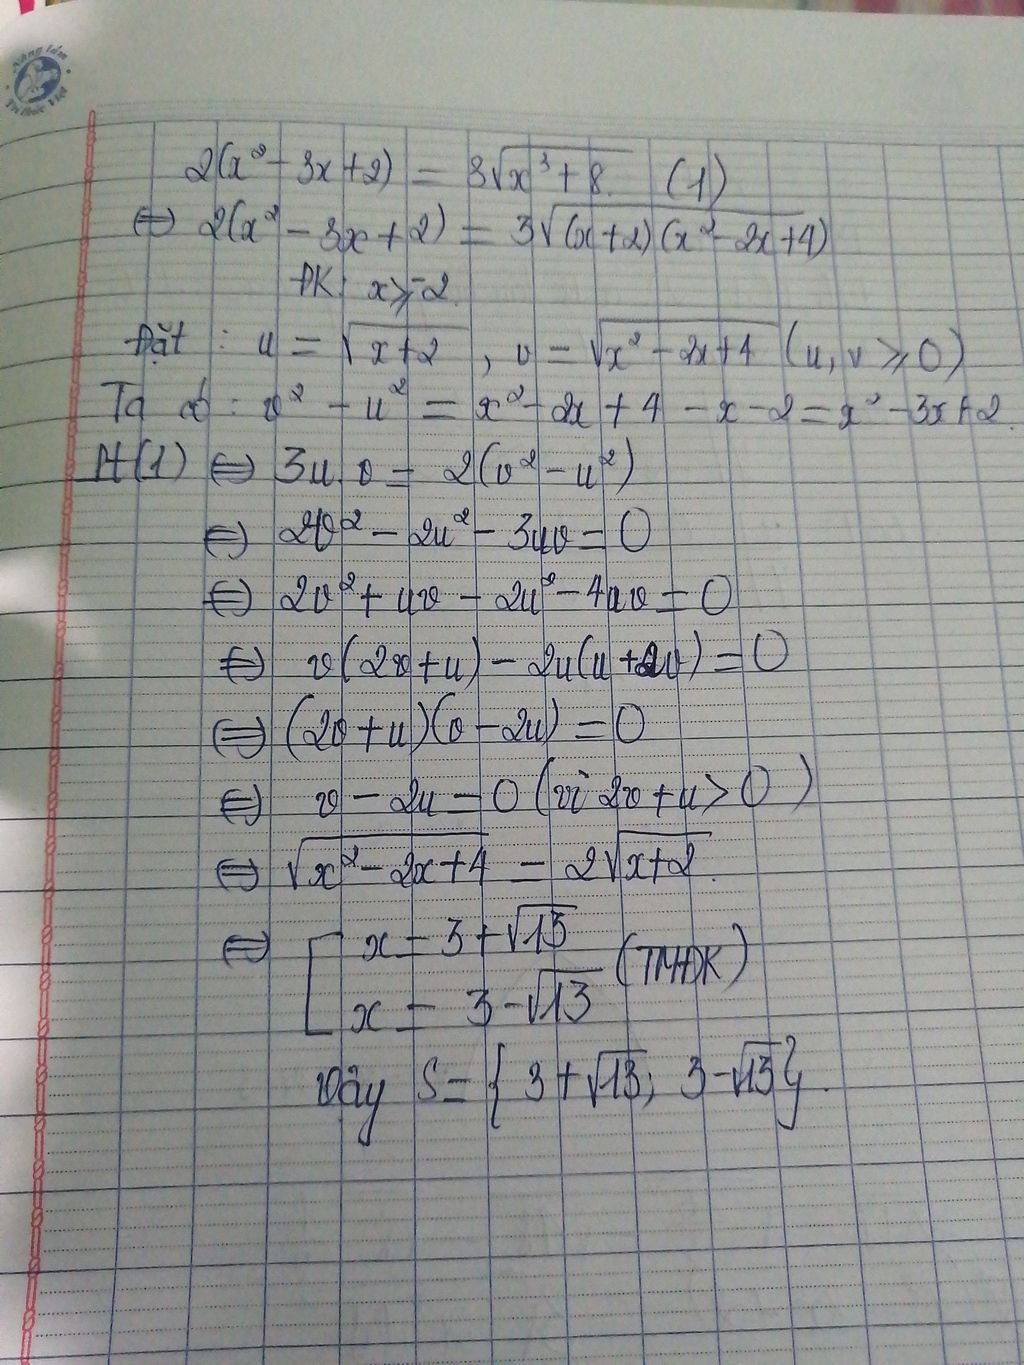 Nâng tầm
Tri thức Việt
2(x² - 3x + 2) = 3√(x³ + 8) (1)
⇔ 2(x² - 3x + 2) = 3√((x+2)(x² - 2x + 4))
ĐK: x ≥ -2
Đặt: u = √(x+2), v = √(x² - 2x + 4) (u, v ≥ 0)
Ta có: v² - u² = x² - 2x + 4 - x - 2 = x² - 3x + 2.
Pt (1) ⇔ 3u.v = 2(v² - u²)
⇔ 2v² - 2u² - 3uv = 0
⇔ 2v² + uv - 2u² - 4uv = 0
⇔ v(2v + u) - 2u(u + 2v) = 0
⇔ (2v + u)(v - 2u) = 0
⇔ v - 2u = 0 (vì 2v + u > 0)
⇔ √(x² - 2x + 4) = 2√(x+2).
⇔ [ x = 3 + √13
x = 3 - √13 (TMĐK)
Vậy S = { 3 + √13; 3 - √13 }.